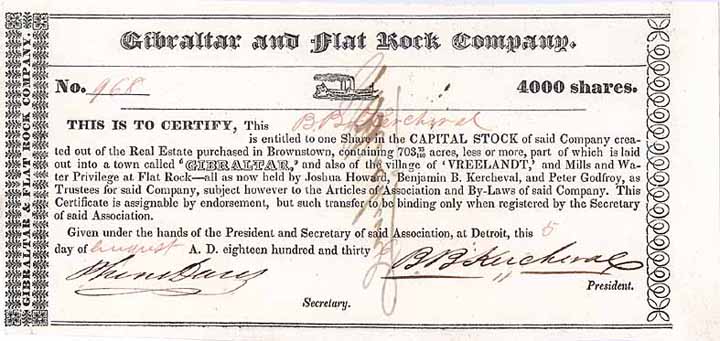 GIBRALTAR & FLAT ROCK COMPANY.
Gibraltar and Flat Rock Company.
No. 968
4000 shares.
THIS IS TO CERTIFY, This B. B. Kercheval
is entitled to one Share in the CAPITAL STOCK of said Company crea-
ted out of the Real Estate purchased in Brownstown, containing 703 acres, less or more, part of which is laid
out into a town called 'GIBRALTAR,' and also of the village of 'VREELANDT,' and Mills and Wa-
ter Privilege at Flat Rock—all as now held by Joshua Howard, Benjamin B. Kercheval, and Peter Godfroy, as
Trustees for said Company, subject however to the Articles of Association and By-Laws of said Company. This
Certificate is assignable by endorsement, but such transfer to be binding only when registered by the Secretary
of said Association.
Given under the hands of the President and Secretary of said Association, at Detroit, this 5
day of august A. D. eighteen hundred and thirty
B B Kercheval
President.
Secretary.